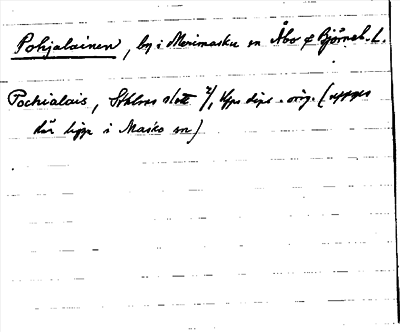 Pohjalainen, by i Merimasku sn Åbo & Björneb. L.
Pochialais, Sthlms slott 2/1, Upps dipl. orig. (uppges
här ligga i Masko sn)